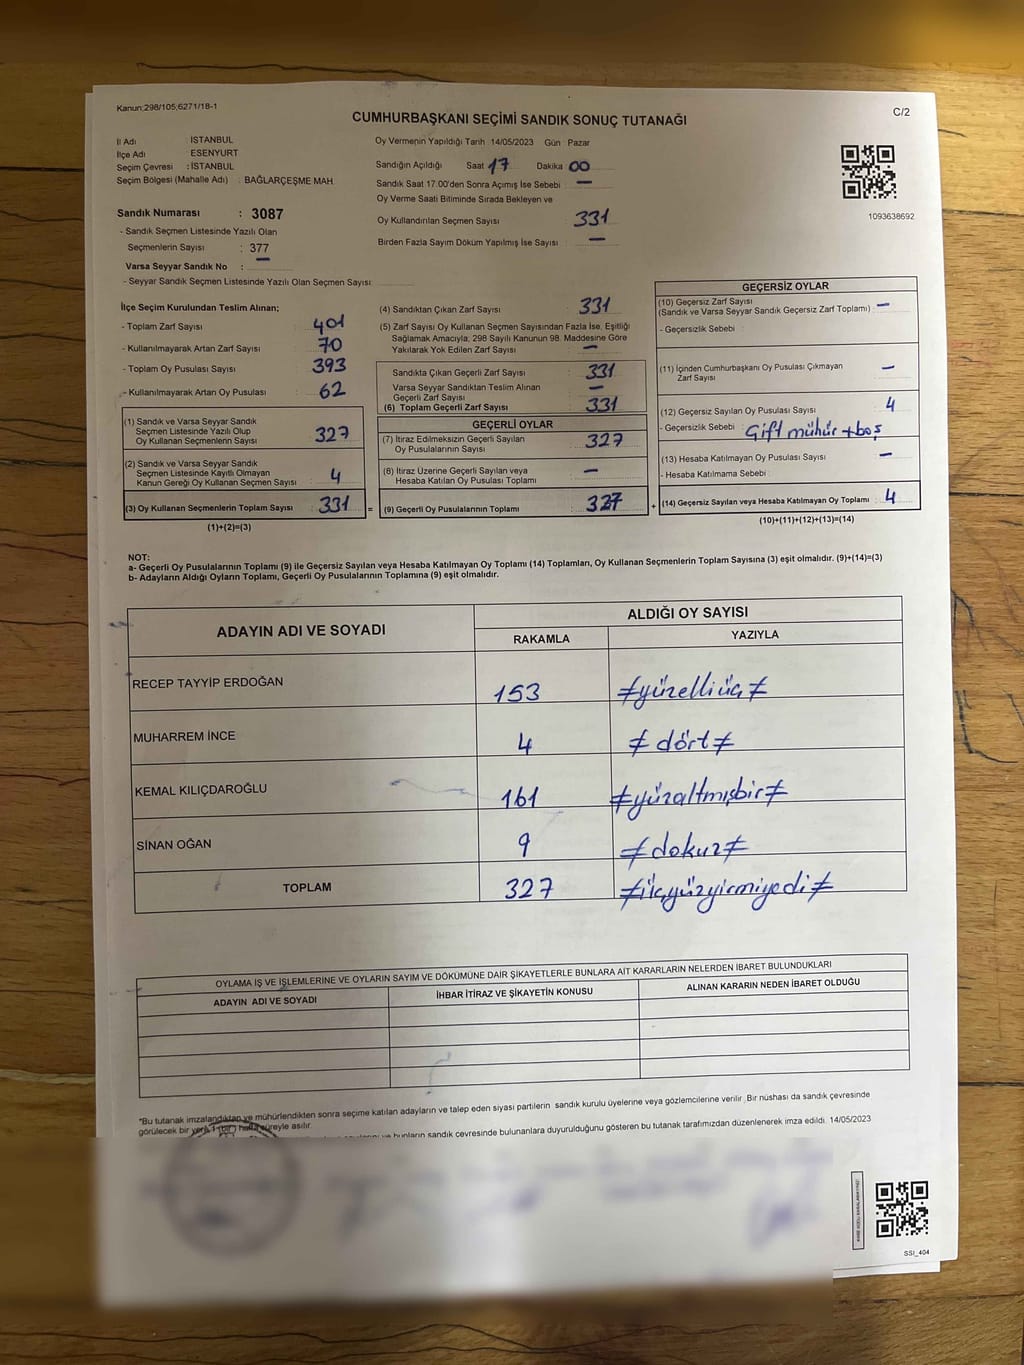 Kanun;298/105;6271/18-1
C/2
CUMHURBAŞKANI SEÇİMİ SANDIK SONUÇ TUTANAĞI
İl Adı İSTANBUL
İlçe Adı ESENYURT
Seçim Çevresi : İSTANBUL
Seçim Bölgesi (Mahalle Adı) : BAĞLARÇEŞME MAH.
Sandık Numarası : 3087
- Sandık Seçmen Listesinde Yazılı Olan
Seçmenlerin Sayısı : 377
Varsa Seyyar Sandık No : —
- Seyyar Sandık Seçmen Listesinde Yazılı Olan Seçmen Sayısı:
Oy Vermenin Yapıldığı Tarih 14/05/2023 Gün Pazar
Sandığın Açıldığı Saat 17 Dakika 00
Sandık Saat 17.00'den Sonra Açımış İse Sebebi : —
Oy Verme Saati Bitiminde Sırada Bekleyen ve
Oy Kullandırılan Seçmen Sayısı : 331
Birden Fazla Sayım Döküm Yapılmış İse Sayısı : —
1093638692
İlçe Seçim Kurulundan Teslim Alınan;
- Toplam Zarf Sayısı : 401
- Kullanılmayarak Artan Zarf Sayısı : 70
- Toplam Oy Pusulası Sayısı : 393
- Kullanılmayarak Artan Oy Pusulası : 62
(1) Sandık ve Varsa Seyyar Sandık
Seçmen Listesinde Yazılı Olup
Oy Kullanan Seçmenlerin Sayısı : 327
(2) Sandık ve Varsa Seyyar Sandık
Seçmen Listesinde Kayıtlı Olmayan
Kanun Gereği Oy Kullanan Seçmen Sayısı : 4
(3) Oy Kullanan Seçmenlerin Toplam Sayısı : 331
(1)+(2)=(3)
(4) Sandıktan Çıkan Zarf Sayısı : 331
(5) Zarf Sayısı Oy Kullanan Seçmen Sayısından Fazla İse, Eşitliği
Sağlamak Amacıyla, 298 Sayılı Kanunun 98. Maddesine Göre
Yakılarak Yok Edilen Zarf Sayısı : —
Sandıkta Çıkan Geçerli Zarf Sayısı : 331
Varsa Seyyar Sandıktan Teslim Alınan
Geçerli Zarf Sayısı : —
(6) Toplam Geçerli Zarf Sayısı : 331
GEÇERLİ OYLAR
(7) İtiraz Edilmeksizin Geçerli Sayılan
Oy Pusulalarının Sayısı : 327
(8) İtiraz Üzerine Geçerli Sayılan veya
Hesaba Katılan Oy Pusulası Toplamı : —
= (9) Geçerli Oy Pusulalarının Toplamı : 327
GEÇERSİZ OYLAR
(10) Geçersiz Zarf Sayısı
(Sandık ve Varsa Seyyar Sandık Geçersiz Zarf Toplamı) : —
- Geçersizlik Sebebi :
(11) İçinden Cumhurbaşkanı Oy Pusulası Çıkmayan
Zarf Sayısı : —
(12) Geçersiz Sayılan Oy Pusulası Sayısı : 4
- Geçersizlik Sebebi : Çift mühür + boş
(13) Hesaba Katılmayan Oy Pusulası Sayısı : —
- Hesaba Katılmama Sebebi :
+ (14) Geçersiz Sayılan veya Hesaba Katılmayan Oy Toplamı : 4
(10)+(11)+(12)+(13)=(14)
NOT:
a- Geçerli Oy Pusulalarının Toplamı (9) ile Geçersiz Sayılan veya Hesaba Katılmayan Oy Toplamı (14) Toplamları, Oy Kullanan Seçmenlerin Toplam Sayısına (3) eşit olmalıdır. (9)+(14)=(3)
b- Adayların Aldığı Oyların Toplamı, Geçerli Oy Pusulalarının Toplamına (9) eşit olmalıdır.
ADAYIN ADI VE SOYADI ALDIĞI OY SAYISI
RAKAMLA YAZIYLA
RECEP TAYYİP ERDOĞAN 153 ≠yüzelliüç≠
MUHARREM İNCE 4 ≠dört≠
KEMAL KILIÇDAROĞLU 161 ≠yüzaltmışbir≠
SİNAN OĞAN 9 ≠dokuz≠
TOPLAM 327 ≠üçyüzyirmiyedi≠
OYLAMA İŞ VE İŞLEMLERİNE VE OYLARIN SAYIM VE DÖKÜMÜNE DAİR ŞİKAYETLERLE BUNLARA AİT KARARLARIN NELERDEN İBARET BULUNDUKLARI
ADAYIN ADI VE SOYADI İHBAR İTİRAZ VE ŞİKAYETİN KONUSU ALINAN KARARIN NEDEN İBARET OLDUĞU
*Bu tutanak imzalandıktan ve mühürlendikten sonra seçime katılan adayların ve talep eden siyasi partilerin sandık kurulu üyelerine veya gözlemcilerine verilir. Bir nüshası da sandık çevresinde
görülecek bir yere 1 (bir) hafta süreyle asılır.
ve bunların sandık çevresinde bulunanlara duyurulduğunu gösteren bu tutanak tarafımızdan düzenlenerek imza edildi. 14/05/2023
SSI_404